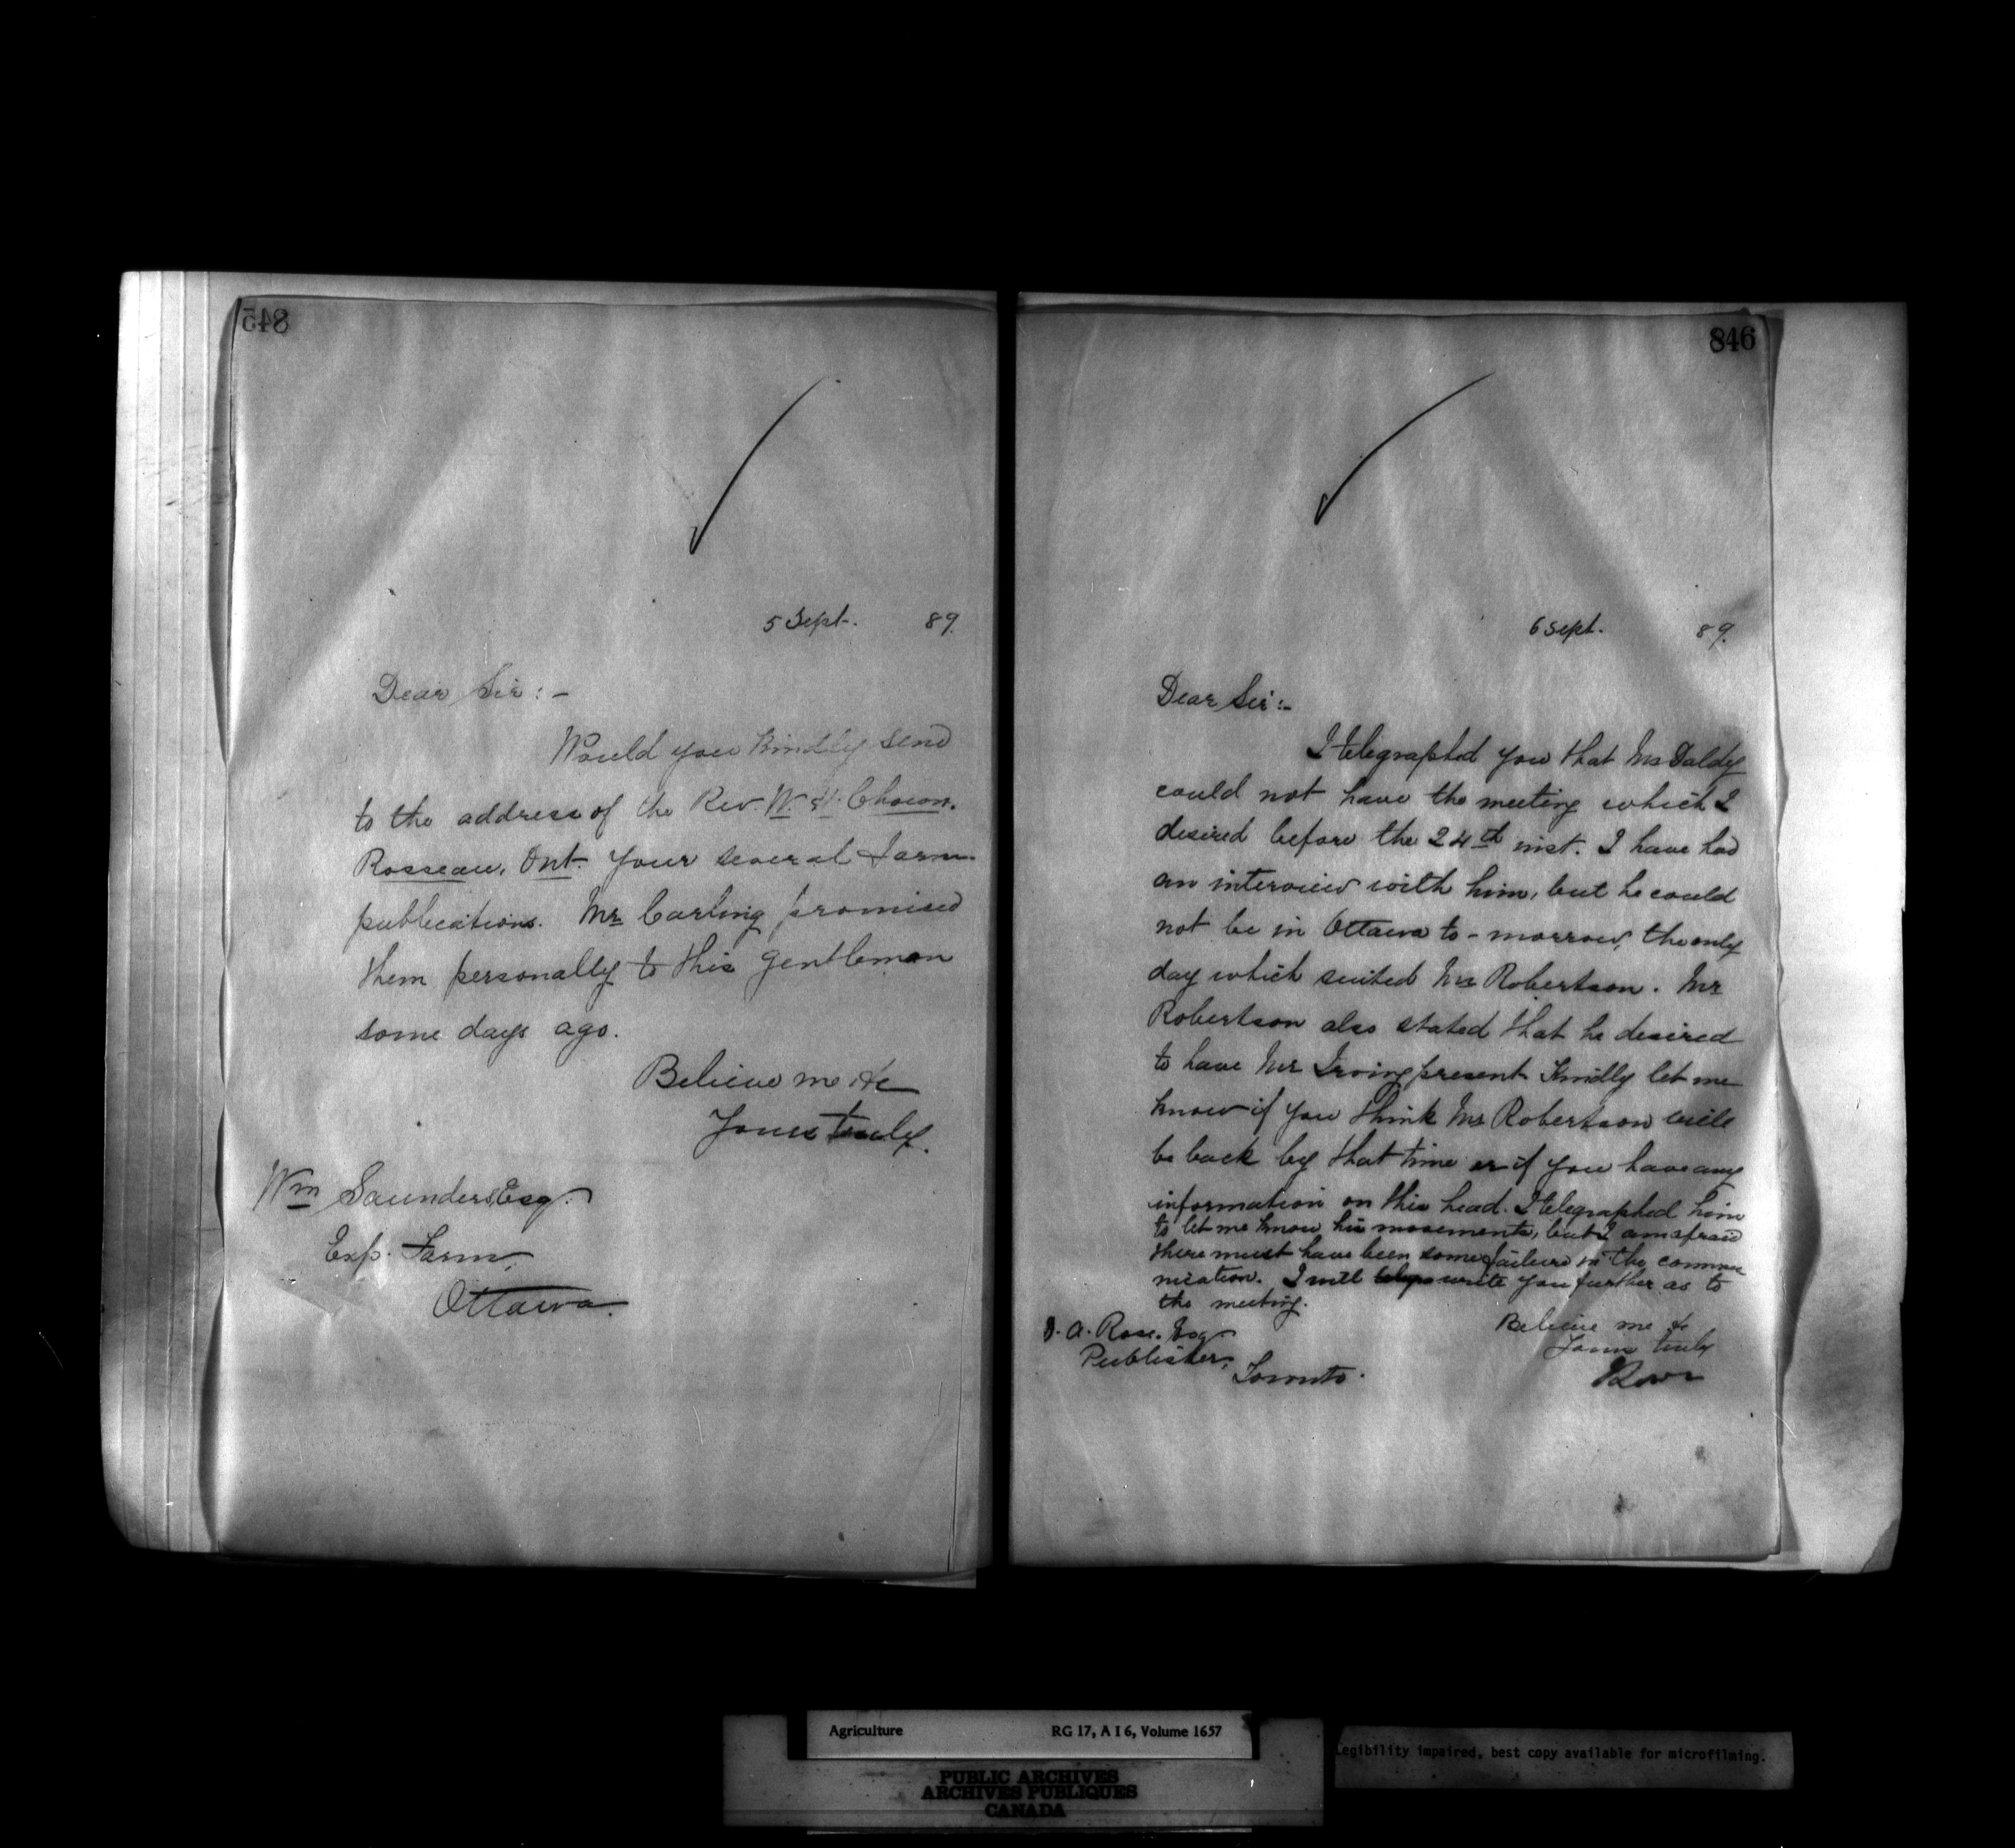 845
5 Sept. 89.
Dear Sir :-
Would you kindly send
to the address of the Rev. W. H. Chown.
Rosseau, Ont. your several farm
publications. Mr Carling promised
them personally to this gentleman
some days ago.
Believe me &c
Yours truly.
Wm Saunders Esq.
Exp. Farm,
Ottawa.
846
6 Sept. 89.
Dear Sir :-
I telegraphed you that Mr Daldy
could not have the meeting which I
desired before the 24th inst. I have had
an interview with him, but he could
not be in Ottawa to-morrow, the only
day which suited Mr Robertson. Mr
Robertson also stated that he desired
to have Mr Irving present Kindly let me
know if you think Mr Robertson will
be back by that time or if you have any
information on this head. I telegraphed him
to let me know his movements, but I am afraid
there must have been some failure in the commu
nication. I will write you further as to
the meeting.
Believe me &c
Yours truly
D. A. Rose. Esq
Publisher,
Toronto.
Agriculture RG 17, A I 6, Volume 1657
PUBLIC ARCHIVES
ARCHIVES PUBLIQUES
CANADA
Legibility impaired, best copy available for microfilming.